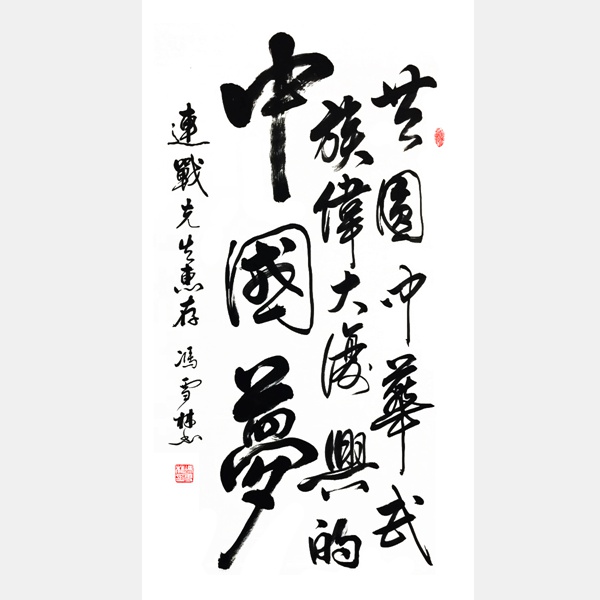 共圆中華民
族偉大復興的
中國夢
連戰先生惠存 馮雪林书